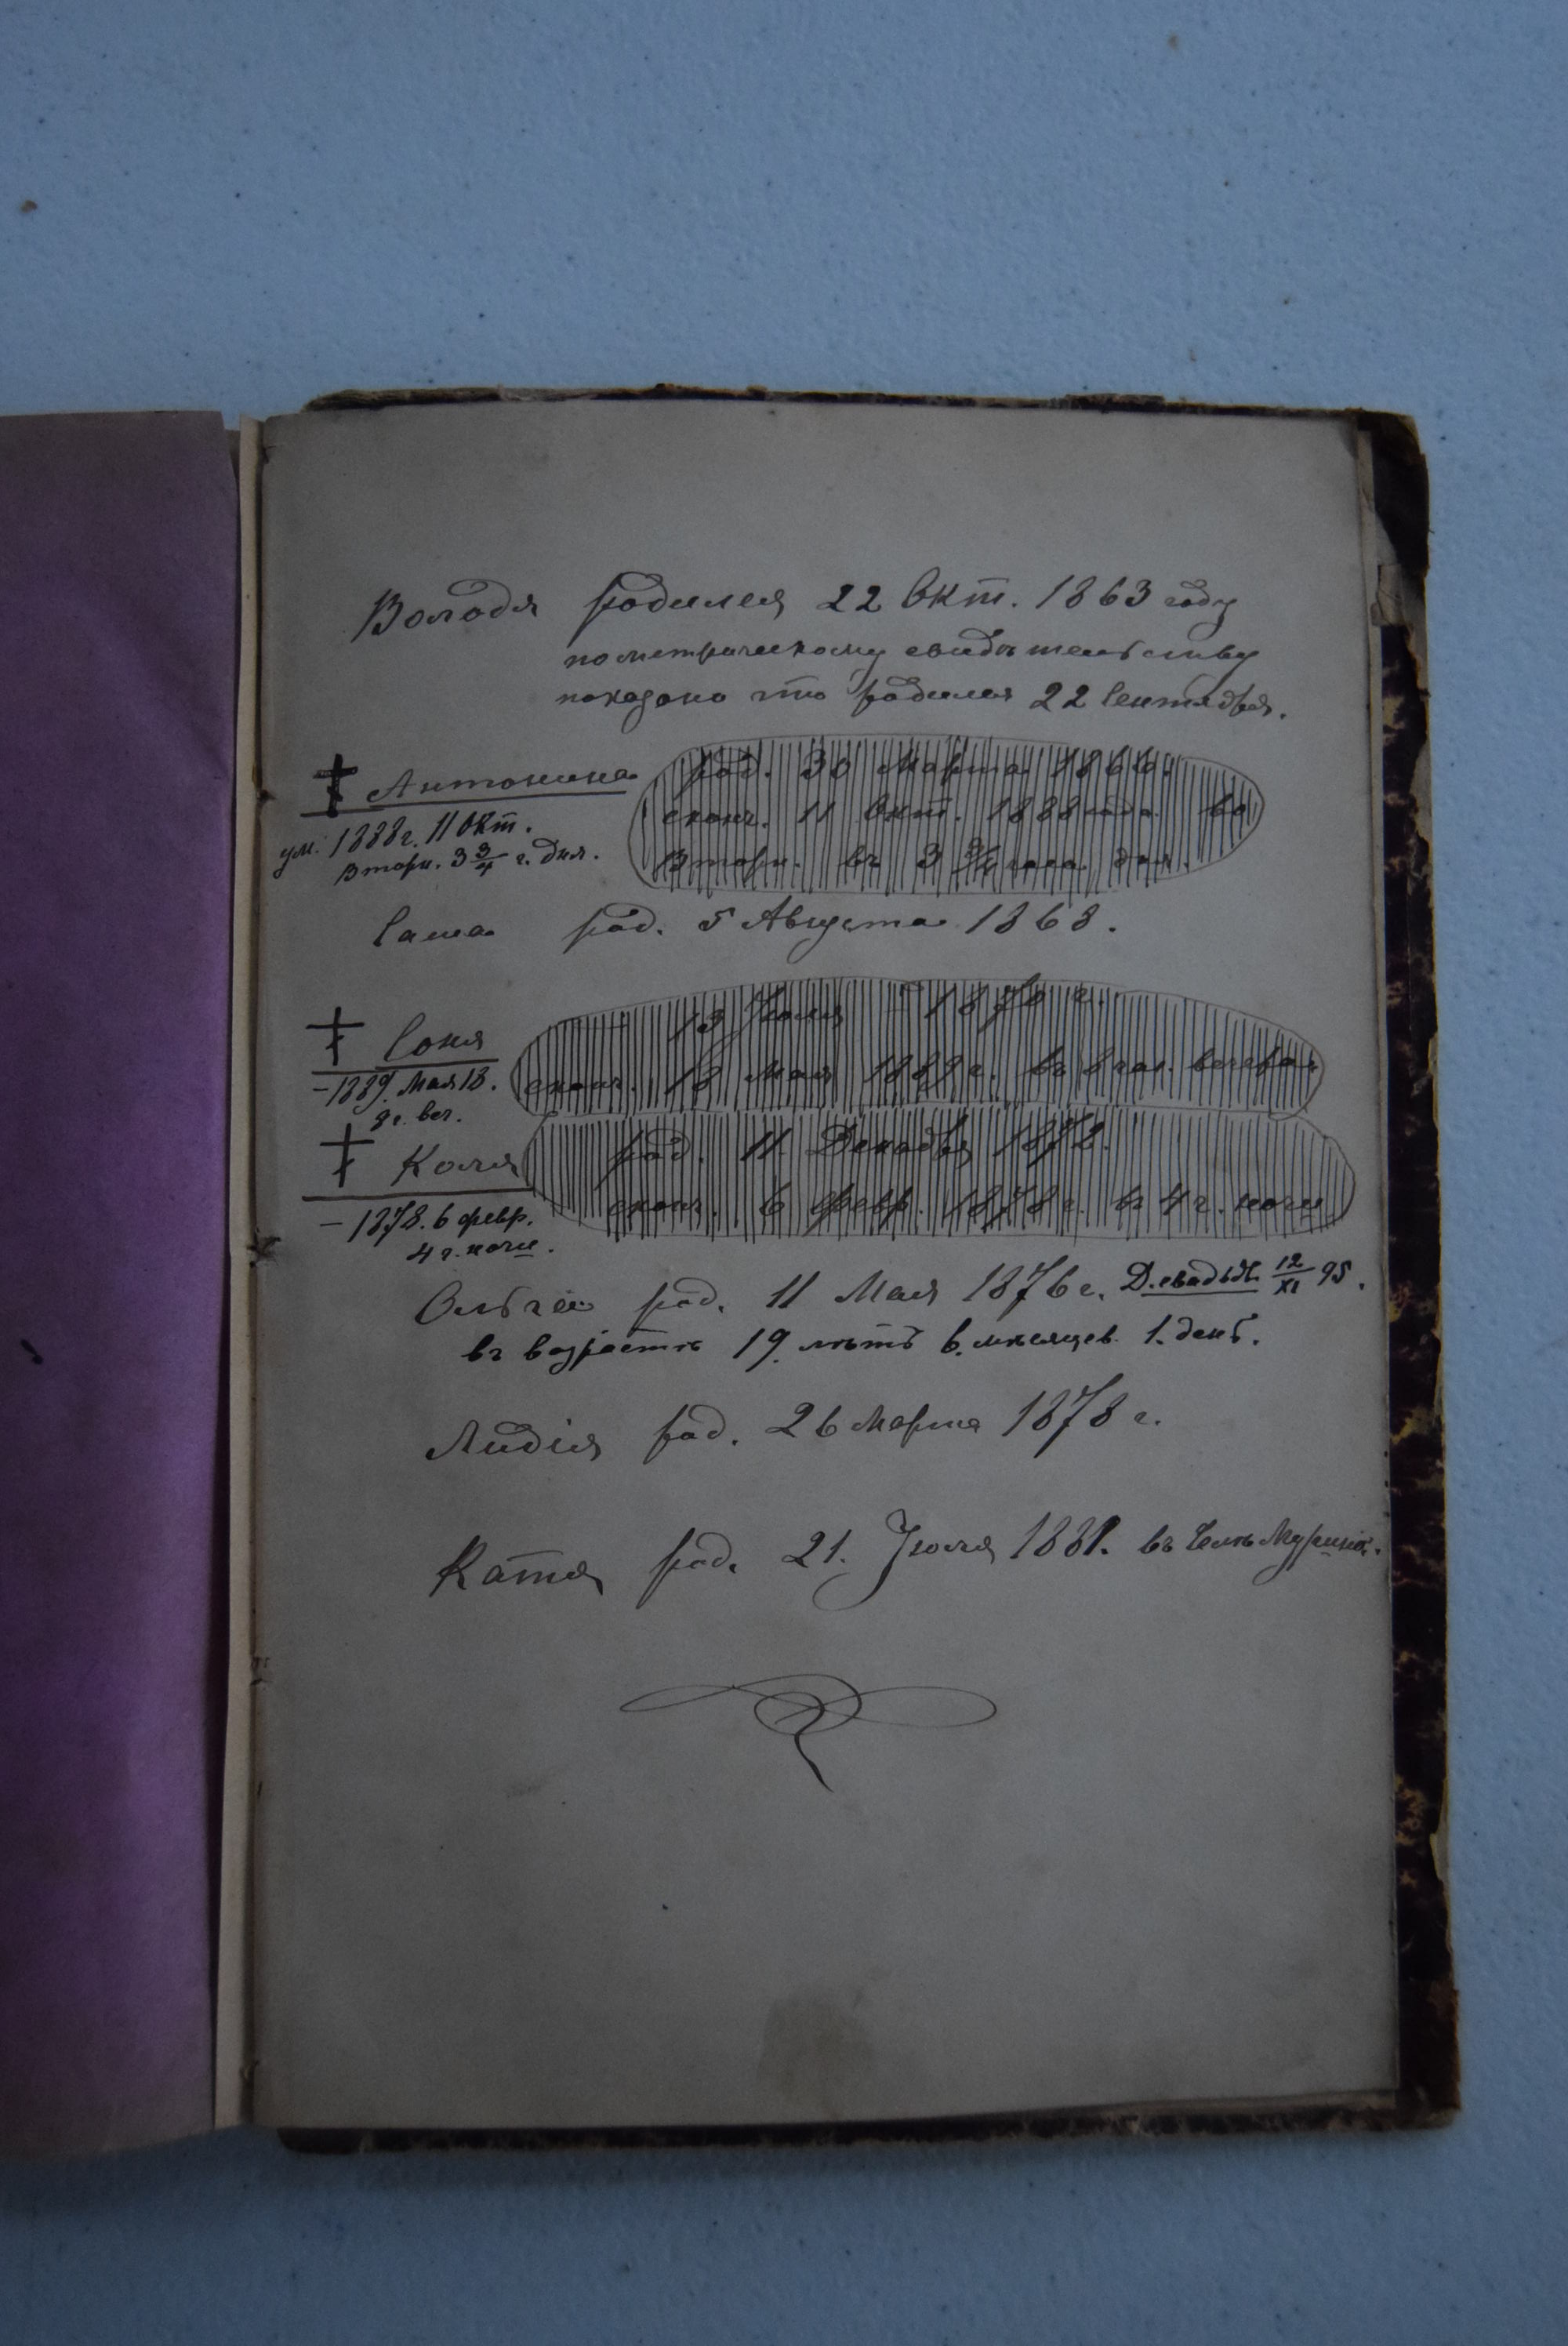 Володя родился 22 Окт. 1863 году
по метрическому свидѣтельству
показано что родился 22 Сентября.
Антонина род. 30 Марта 1866.
ум. 1888 г. 11 Окт. сконч. 11 Окт. 1888 года во
Вторн. 3 3/4 ч. дня. Вторн. въ 3 3/4 часа дня.
Саша род. 5 Августа 1868.
Соня 13 Іюля 1870 г.
– 1889. Мая 18. сконч. 18 Мая 1889 г. въ 8 час. вечера
ч. веч.
Коля род. 11 Декабря 1872.
– 1878. 6 февр. сконч. 6 февр. 1878 г. в 4 г. ночи
4 ч. ночи.
Ольга род. 11 Мая 1876 г. Д. свадьб. 12/XI 95.
въ возрастѣ 19. лѣтъ 6. мѣсяцев. 1. день.
Лидія род. 26 Марта 1878 г.
Катя род. 21. Іюля 1881. въ Селѣ